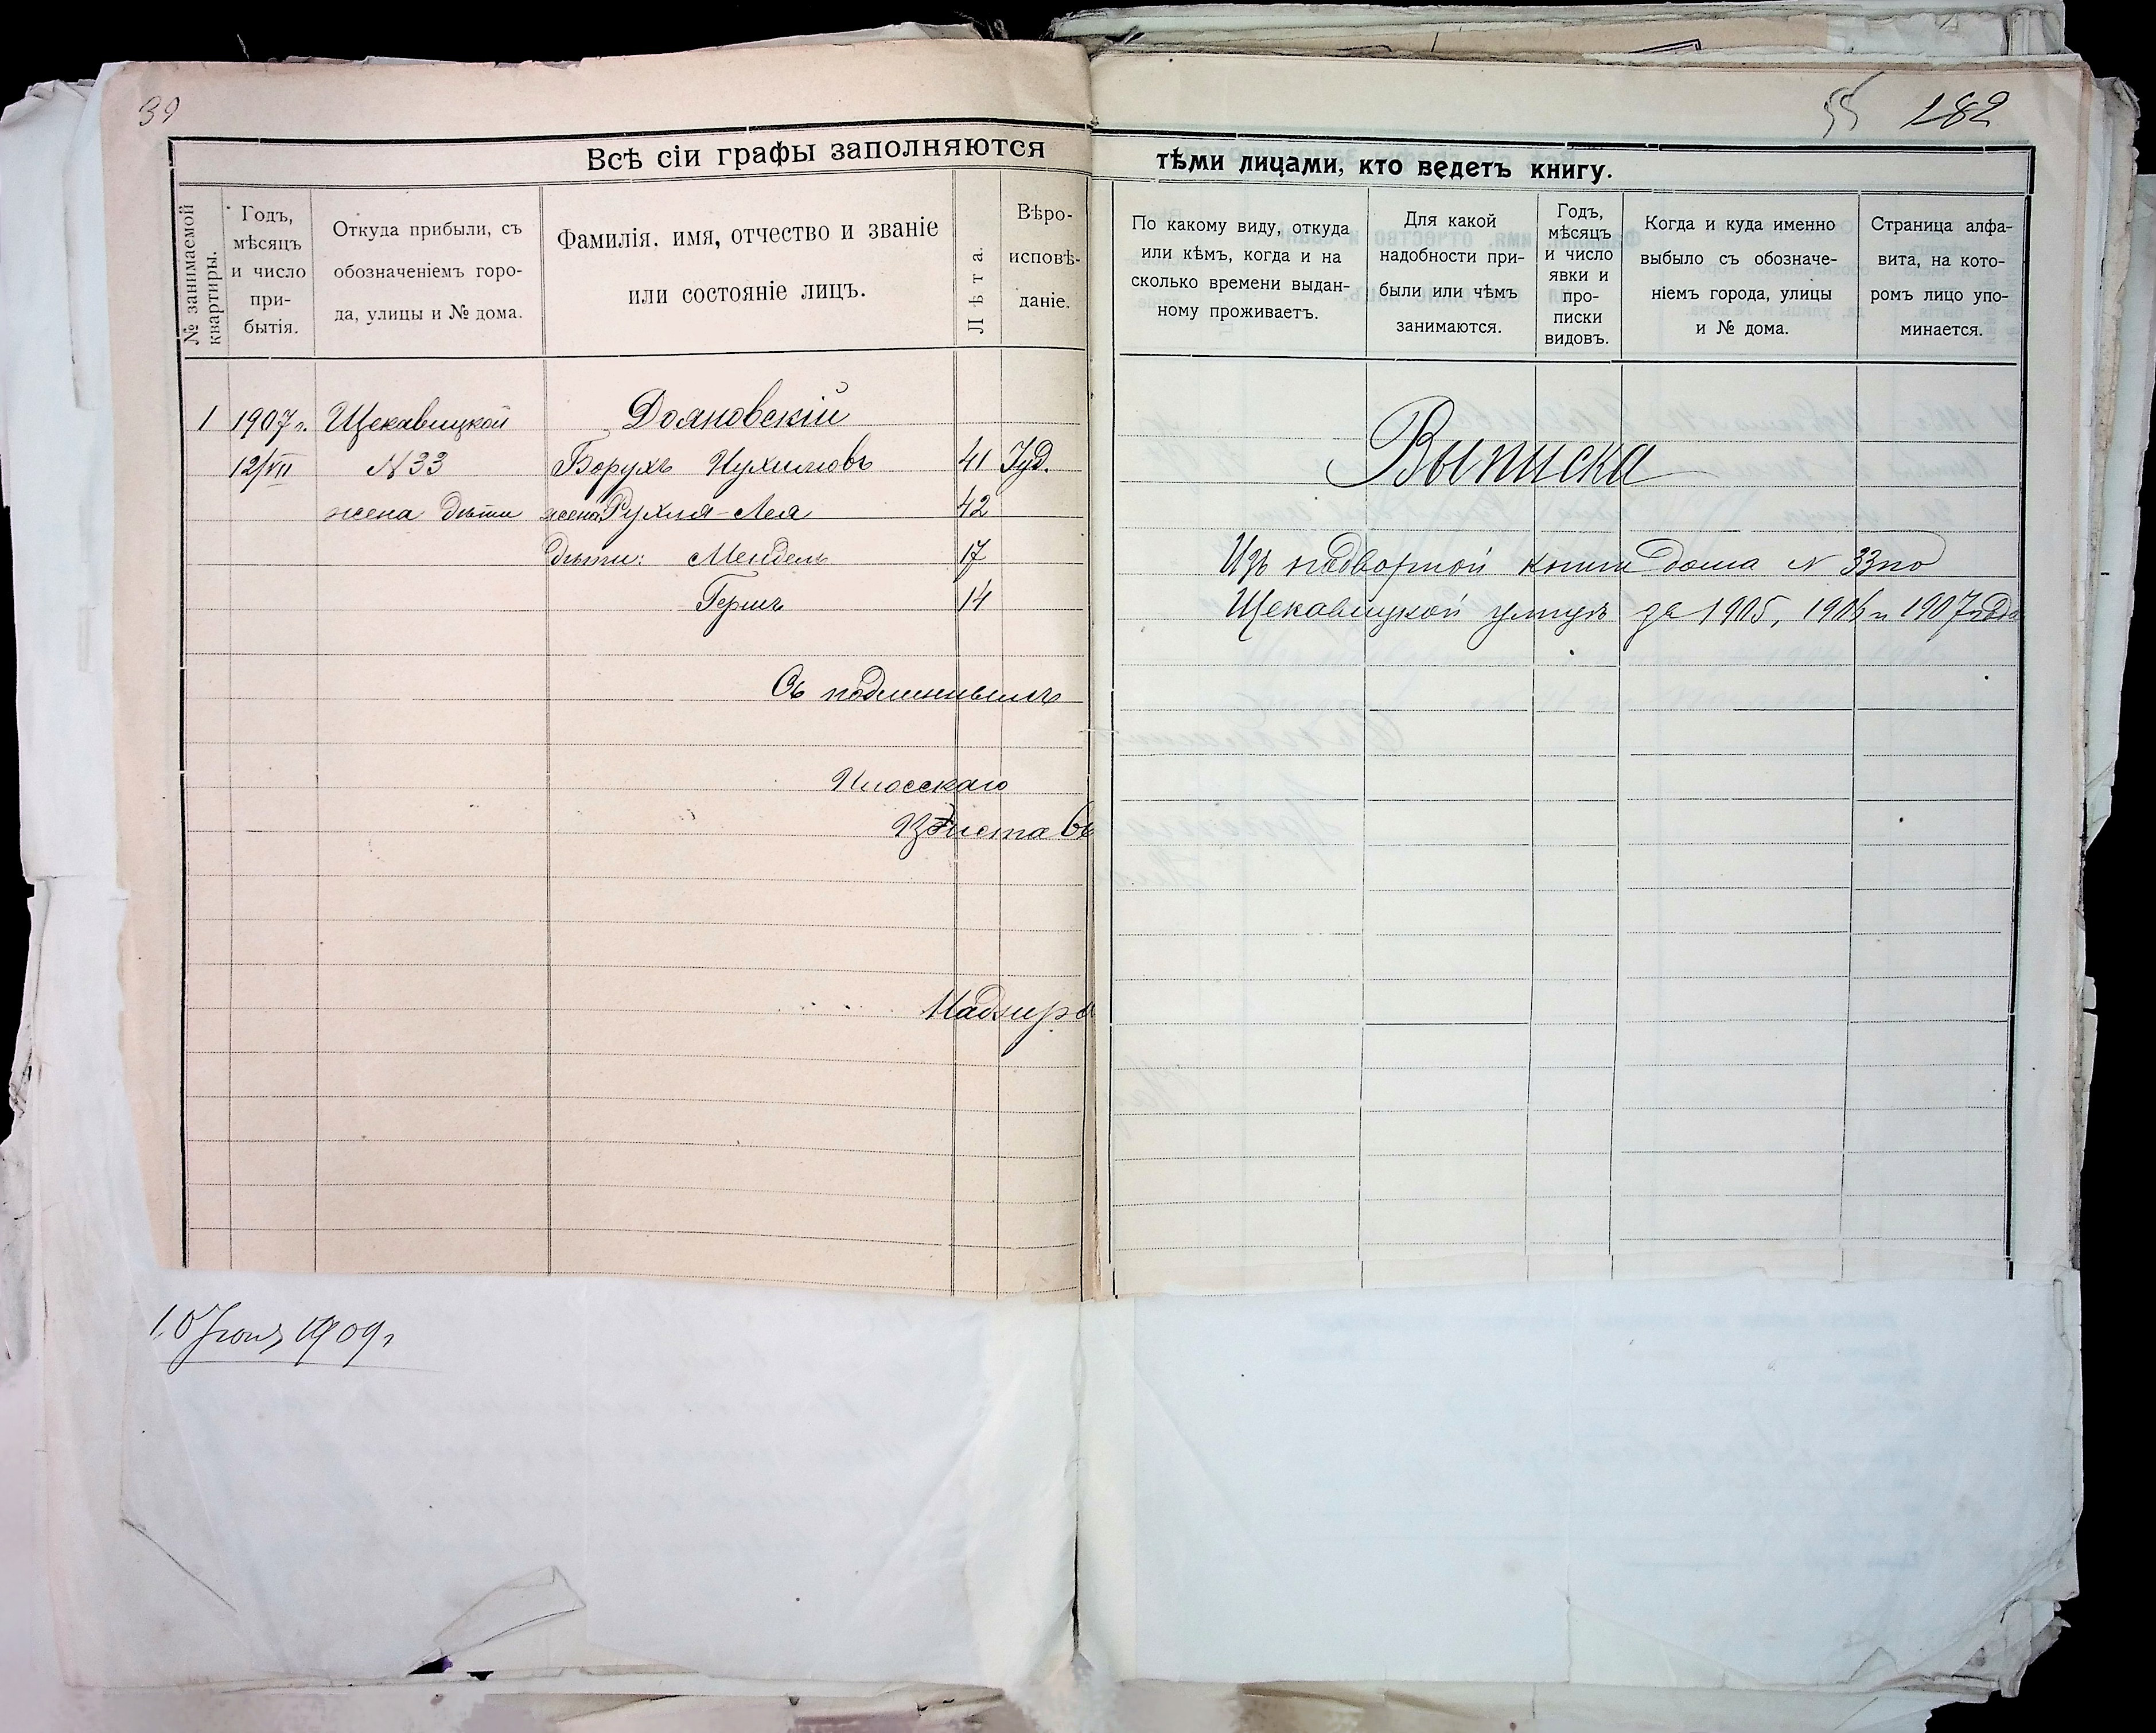 39
55 182
Всѣ сіи графы заполняются
тѣми лицами, кто ведетъ книгу.
№ занимаемой
квартиры.
Годъ,
мѣсяцъ
и число
при-
бытія.
Откуда прибыли, съ
обозначеніемъ горо-
да, улицы и № дома.
Фамилія. имя, отчество и званіе
или состояніе лицъ.
Лѣта.
Вѣро-
исповѣ-
даніе.
По какому виду, откуда
или кѣмъ, когда и на
сколько времени выдан-
ному проживаетъ.
Для какой
надобности при-
были или чѣмъ
занимаются.
Годъ,
мѣсяцъ
и число
явки и
про-
писки
видовъ.
Когда и куда именно
выбыло съ обозначе-
ніемъ города, улицы
и № дома.
Страница алфа-
вита, на кото-
ромъ лицо упо-
минается.
1 1907 г. Щекавицкой Дояновскій
12/VII N 33 Борухъ Нухимовъ 41 Іуд.
жена дѣти жена Рухля-Лея 42
дѣти: Мендель 17
Гершъ 14
Съ подлиннымъ
Плосскаго
Пристав
Надзира
Выписка
Изъ подворной книги дома N 33 по
Щекавицкой улицѣ за 1905, 1906 и 1907 года
10 Іюня 1909 г